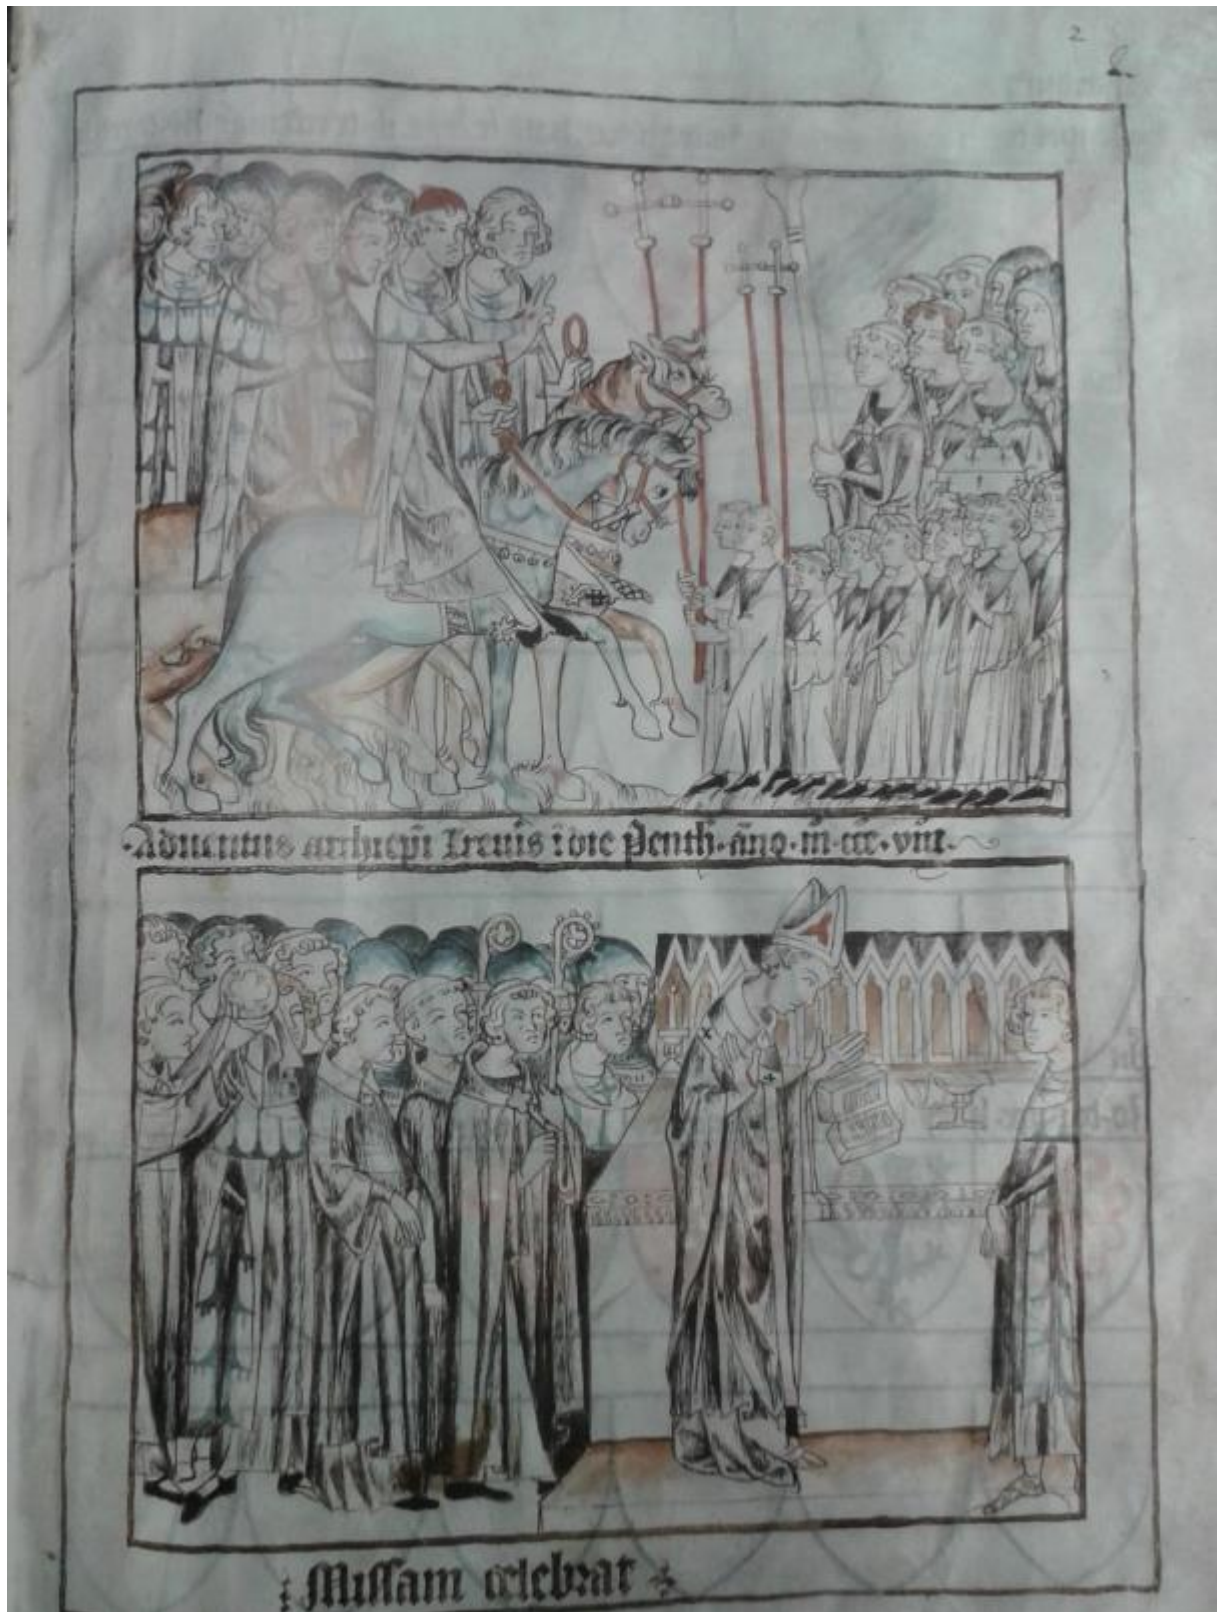 2
·Adventus archiepi Trever̄is ī die Penth·año·m̄·ccc·viii·
Missam celebrat